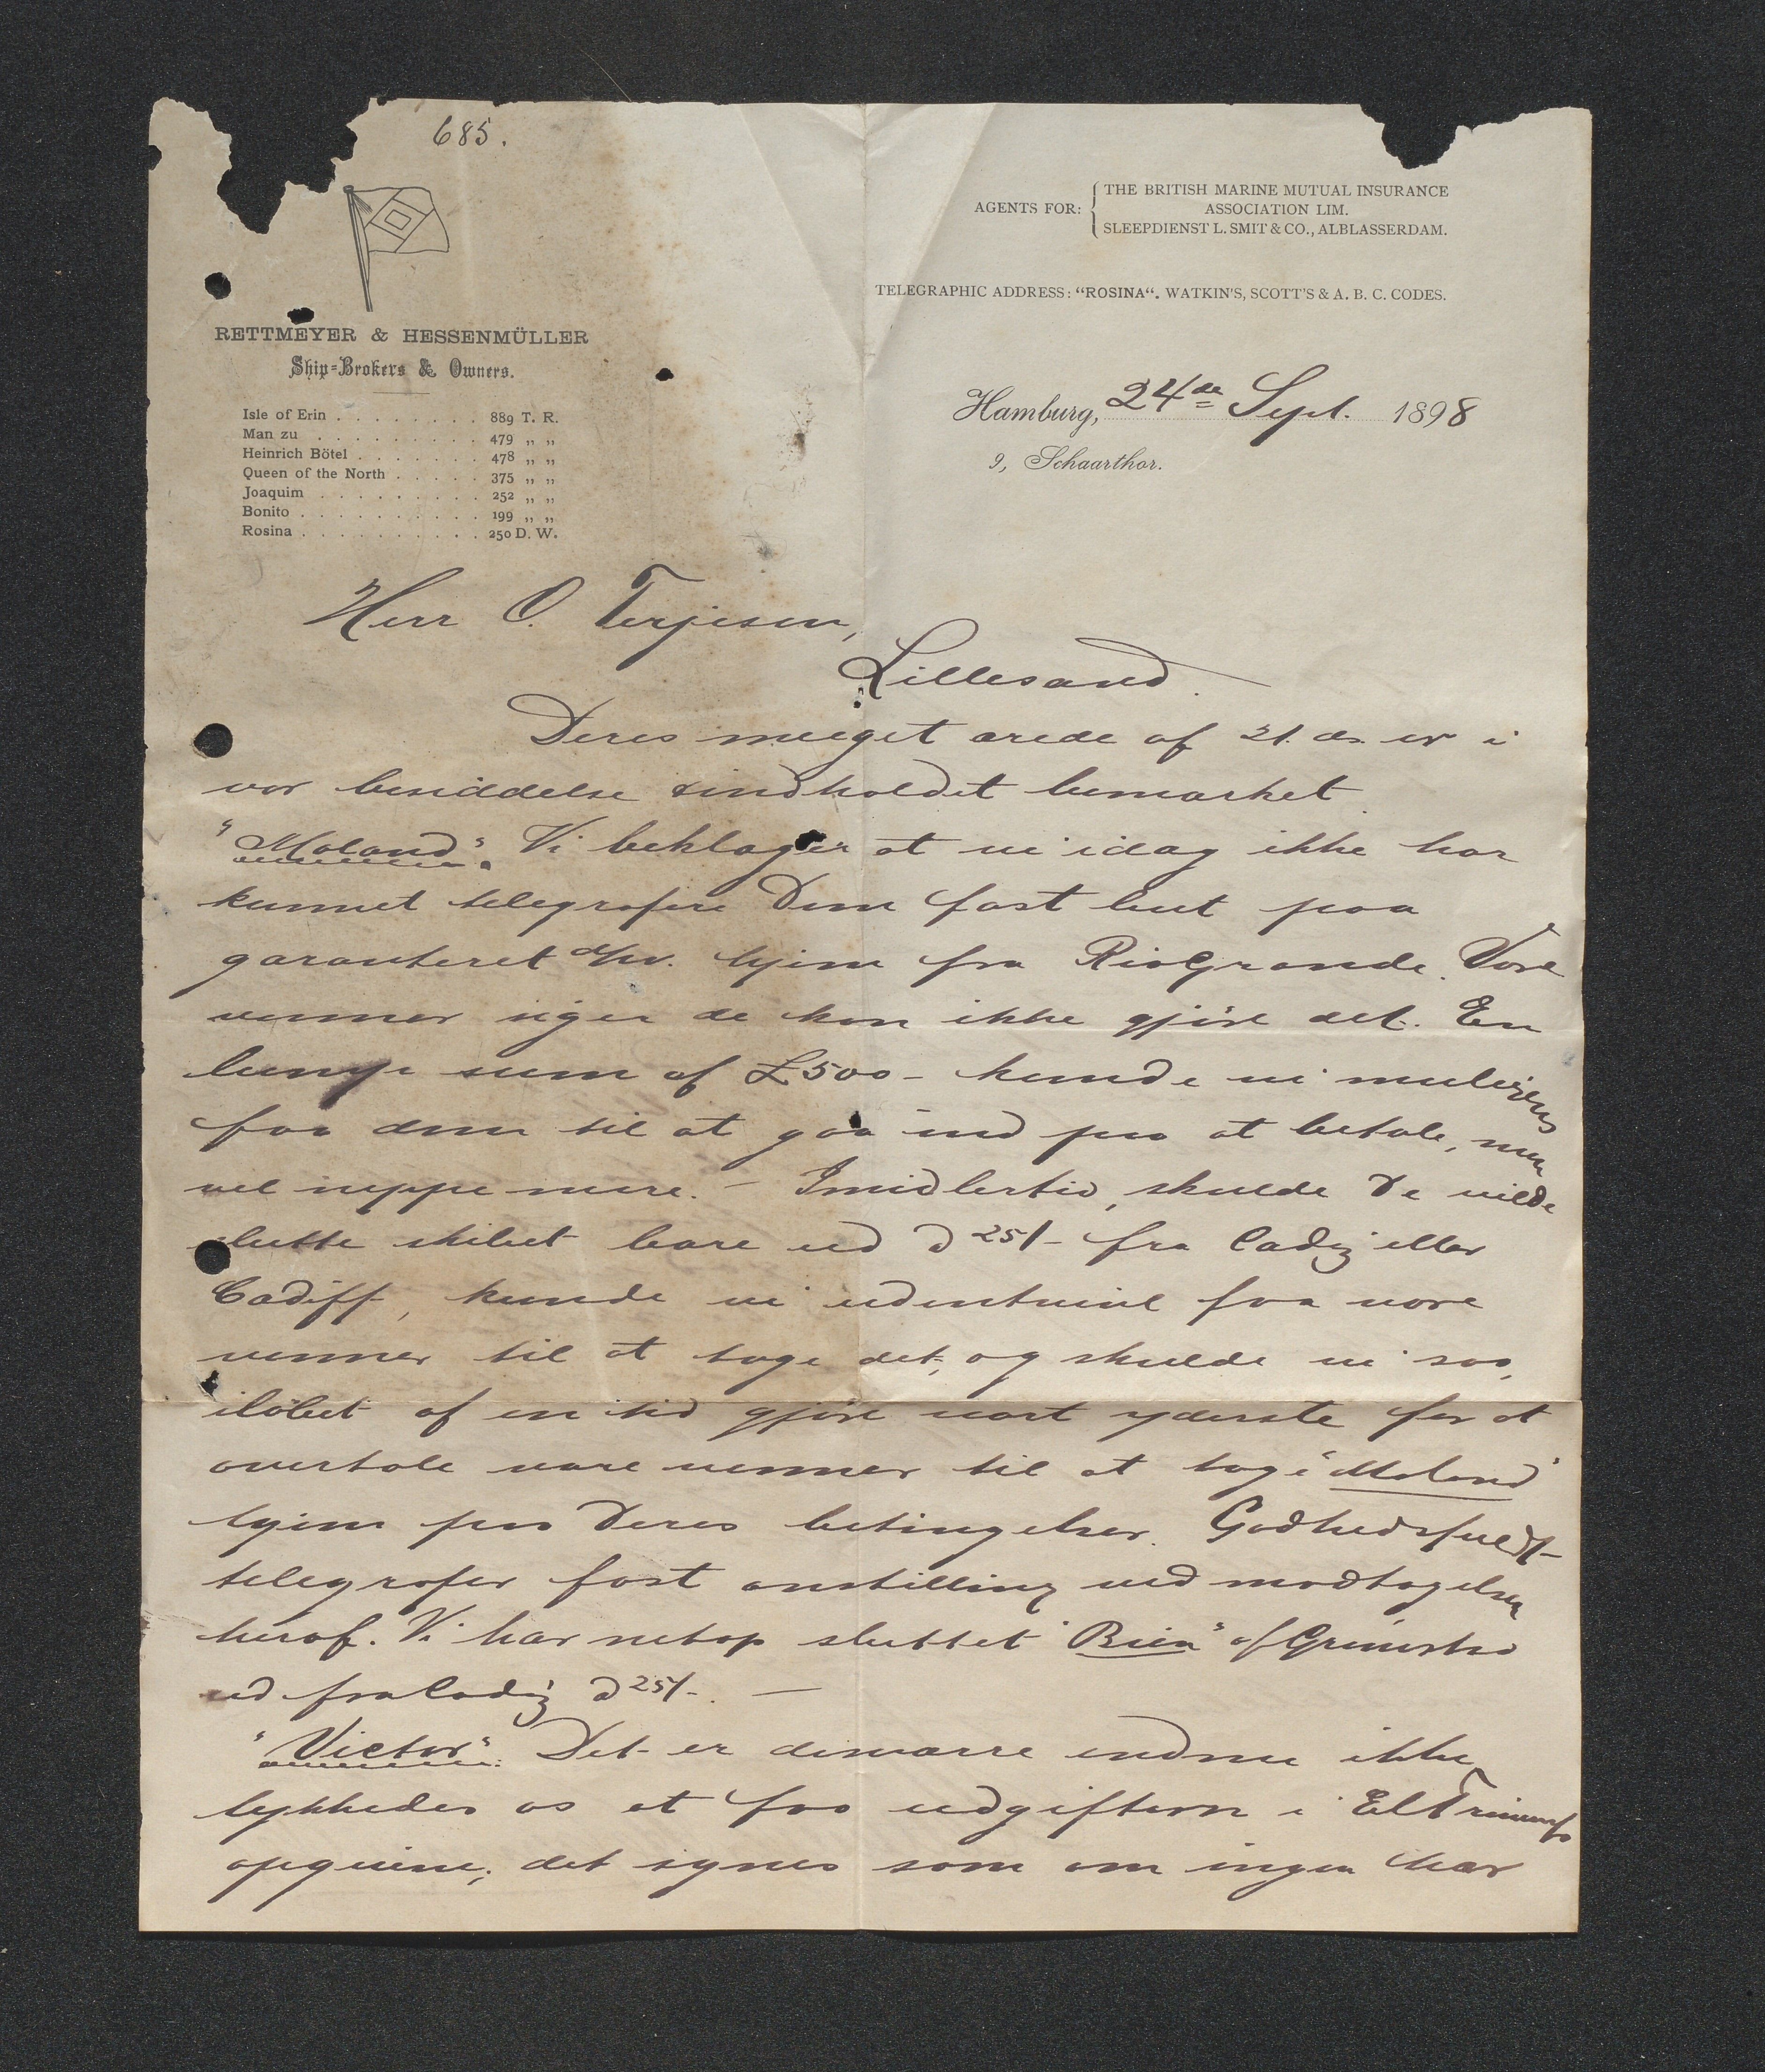 685.
AGENTS FOR: THE BRITISH MARINE MUTUAL INSURANCE
ASSOCIATION LIM.
SLEEPDIENST L. SMIT & CO., ALBLASSERDAM.
TELEGRAPHIC ADDRESS: “ROSINA“. WATKIN'S, SCOTT'S & A. B. C. CODES.
RETTMEYER & HESSENMÜLLER
Ship=Brokers & Owners.
Isle of Erin . . . . . . . . 889 T. R.
Man zu . . . . . . . . . 479 „ „
Heinrich Bötel . . . . . . . 478 „ „
Queen of the North . . . . . 375 „ „
Joaquim . . . . . . . . . 252 „ „
Bonito . . . . . . . . . . 199 „ „
Rosina . . . . . . . . . . 250 D. W.
Hamburg, 24de Sept. 1898
9, Schaarthor.
Herr O. Terjesen,
Lillesand.
Deres meeget ærede af 21. ds. er i
vor besiddelse & indholdet bemærket.
"Moland". Vi beklager at vi idag ikke har
kunnet telegrafere Dem fast bud paa
garanteret d/w. hjem fra Rio Grande. Vore
venner siger de kan ikke gjöre det. En
lump sum af £500- kunde vi muligens
faa dem til at gaa ind paa at betale, men
vel neppe mere. – Imidlertid, skulde De vilde
slutte skibet bare ud à 25/- fra Cadiz eller
Cadiff, kunde vi eventuelt faa vore
venner til at tage det, og skulde vi saa,
ilöbet af en tid gjöre vort yderste for at
overtale vore venner til at tage "Moland"
hjem paa Deres betingelser. Godhedsfuldt
telegrafer fast anstilling ved modtagelsen
heraf. Vi har netop sluttet "Bien" af Grimstad
ud fra Cadiz à 25/-. —
"Victor". Det er desværre endnu ikke
lykkedes os at faa udgifterne i El Triunfo
opgivne; det synes som om ingen har